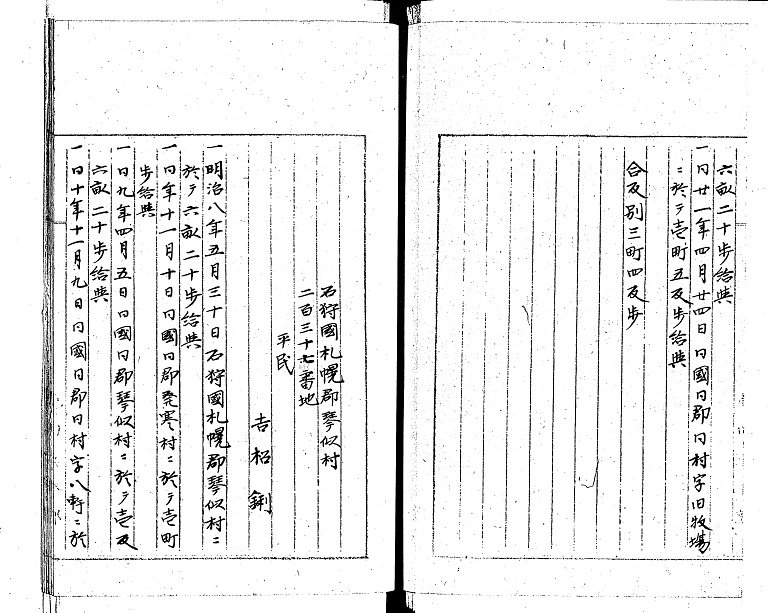 六畝二十歩給与
一同廿一年四月廿四日同國同郡同村字旧牧場
ニ於テ壱町五反歩給與
合反別三町四反歩
石狩國札幌郡琴似村
二百三十七番地
平民
吉
一明治八年五月三十日石狩國札幌郡琴似村ニ
於テ六畝二十歩給與
一同年十一月十日同國同郡発寒村ニ於テ壱町
歩給與
一同九年四月五日同國同郡琴似村ニ於テ壱反
六畝二十歩給與
一同十年十一月九日同國同郡同村字八軒ニ於